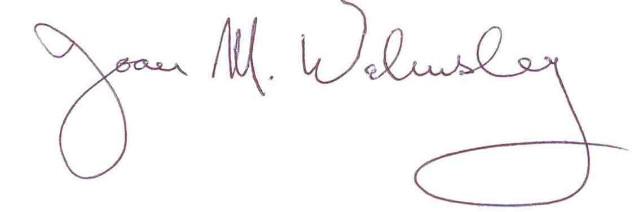 Joan M. Walmsley